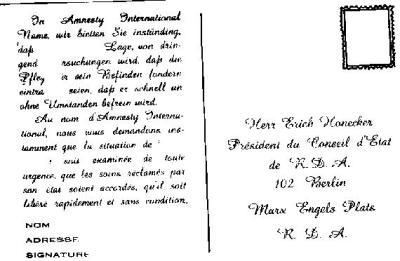 In Amnesty International
Name, wir bintten Sie inständing,
daß Lage, von drin-
gend rsuchungen wird, daß die
Pfleg er sein Befinden fordern
eintra seien, daß er schnell un
ohne Umstanden befrein wird.
Au nom d'Amnesty Interna-
tional, nous vous demandons ins-
tamment que la situation de
soit examinée de toute
urgence, que les soins réclamés par
son état soient accordés, qu'il soit
libéré rapidement et sans condition.
NOM
ADRESSE
SIGNATURE
Herr Erich Honecker
Président du Conseil d'Etat
de R. D. A.
102 Berlin
Marx Engels Platz
R. D. A.